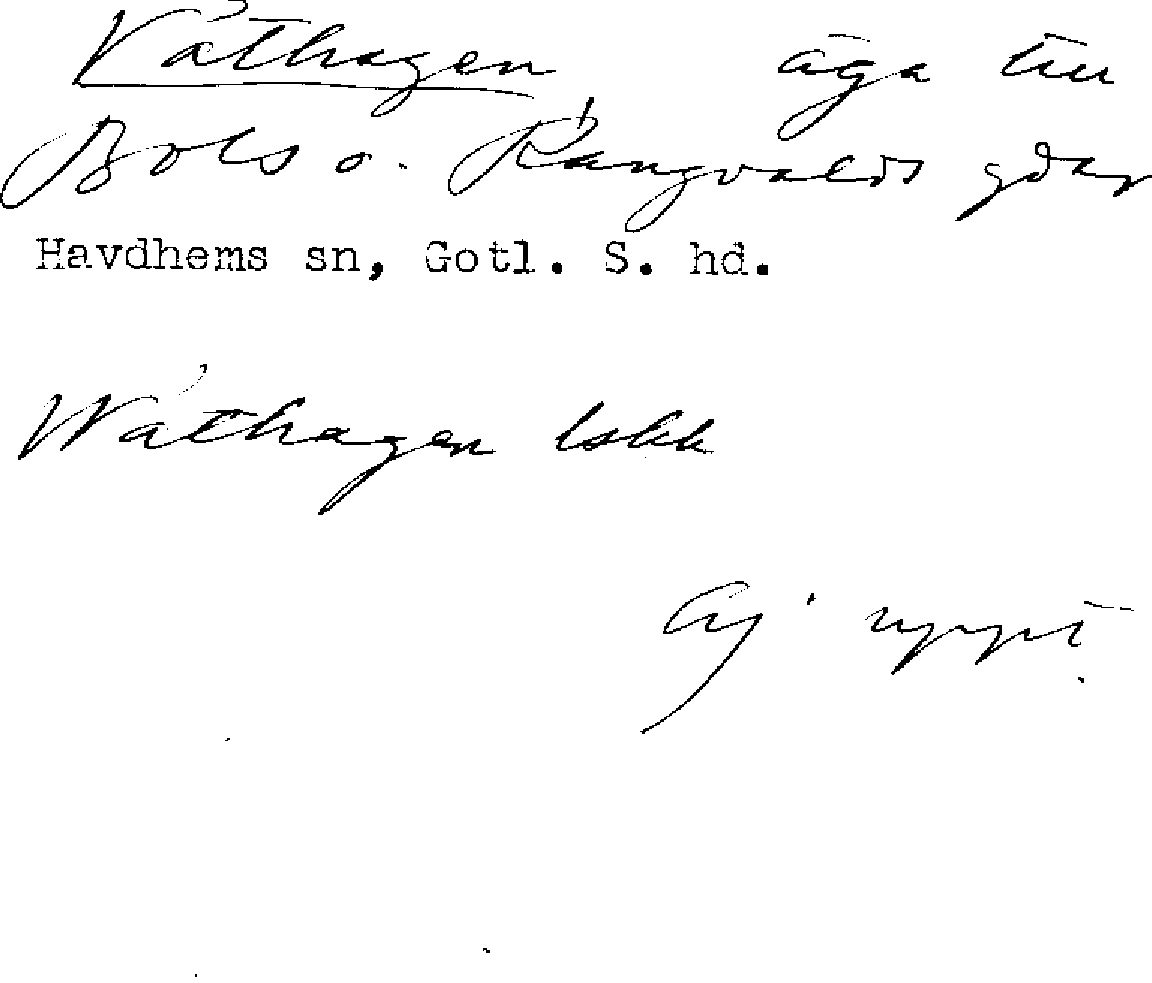 Våthagen äga till
Bols o. Rangvalds gdar
Havdhems sn, Gotl. S. hd.
Wåthagen lskk
Ej uppt.